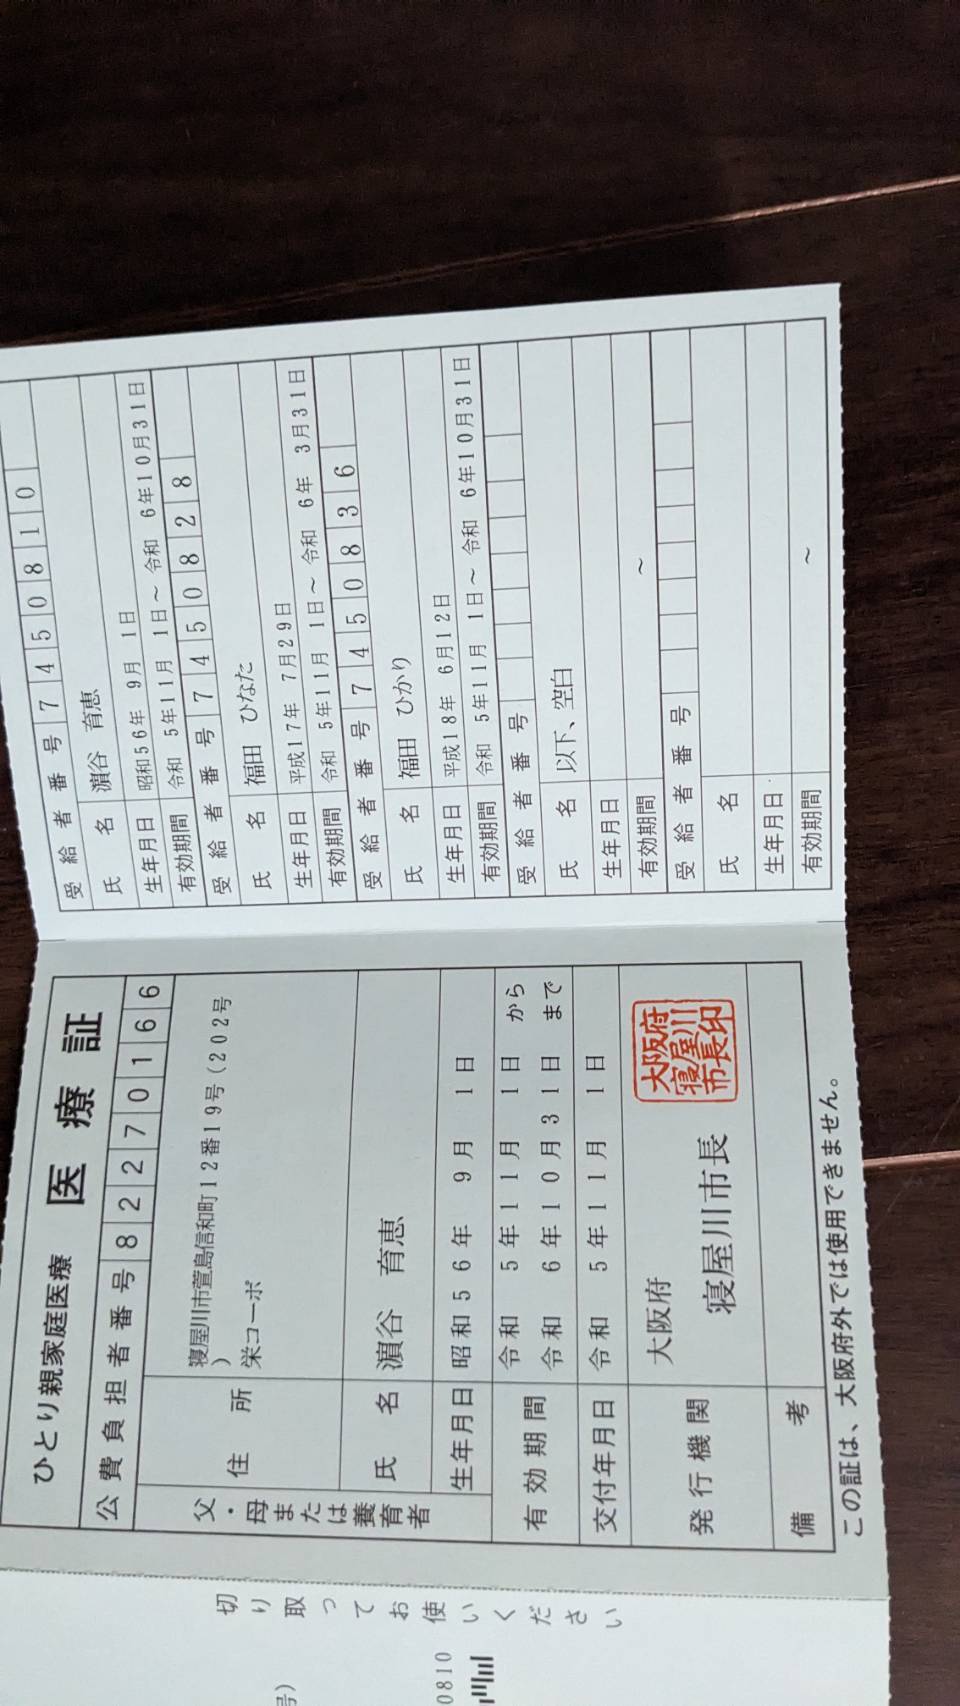 ひとり親家庭医療 医療証
公費負担者番号 82270166
父・母または養育者
住所 寝屋川市萱島信和町12番19号(202号
)
栄コーポ
氏名 濵谷 育恵
生年月日 昭和56年 9月 1日
有効期間 令和 5年11月 1日 から
令和 6年10月31日 まで
交付年月日 令和 5年11月 1日
発行機関 大阪府
寝屋川市長
大阪府
寝屋川
市長印
備考
この証は、大阪府外では使用できません。
受給者番号 7450810
氏名 濵谷 育恵
生年月日 昭和56年 9月 1日
有効期間 令和 5年11月 1日~令和 6年10月31日
受給者番号 7450828
氏名 福田 ひなた
生年月日 平成17年 7月29日
有効期間 令和 5年11月 1日~令和 6年 3月31日
受給者番号 7450836
氏名 福田 ひかり
生年月日 平成18年 6月12日
有効期間 令和 5年11月 1日~令和 6年10月31日
受給者番号
氏名 以下、空白
生年月日
有効期間 ~
受給者番号
氏名
生年月日
有効期間 ~
切り取ってお使いください
号)
0810